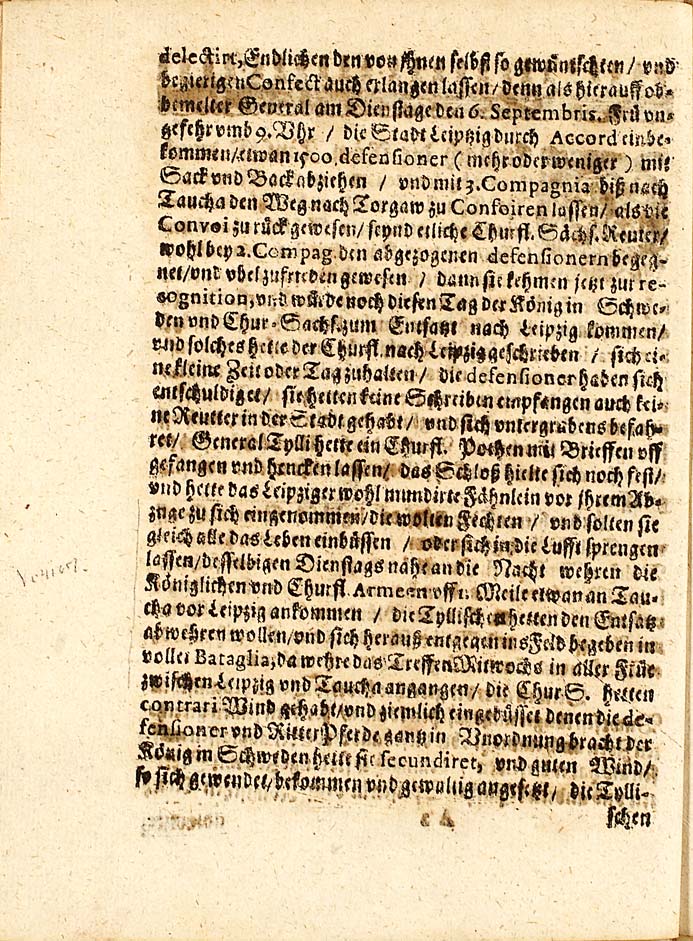 delectirt, Endlichen den von jhnen selbst so gewüntschten / vnd
begierigen Confect auch erlangen lassen / denn als hierauff ob-
bemelter General am Dienstage den 6. Septembris. Frü vn-
gefehr vmb 9. Vhr / die Stadt Leipzig durch Accord einbe-
kommen / etwan 1500. defensioner (mehr oder weniger) mit
Sack vnd Back abziehen / vnd mit 3. Compagnia biß nach
Taucha den Weg nach Torgaw zu Confoiren lassen / als die
Convoi zu rück gewesen / seynd etliche Churfl. Sächs. Reuter /
wohl bey 2. Compag. den abgezogenen defensionern begeg-
net / vnd vbel zufrieden gewesen / dann sie kehmen jetzt zur re-
cognition, vnd würde noch diesen Tag der König in Schwe-
den vnd Chur-Sachs. zum Entsatzt nach Leipzig kommen /
vnd solches hette der Churfl. nach Leipzig geschrieben / sich ei-
ne kleine Zeit oder Tag zuhalten / die defensioner haben sich
entschuldiget / sie hetten keine Schreiben empfangen auch kei-
ne Reutter in der Stadt gehabt / vnd sich vntergrabens befah-
ret / General Tylli hette ein Churfl. Pothen mit Brieffen vff
gefangen vnd hencken lassen / das Schloß hielte sich noch fest /
vnd hette das Leipziger wohl mundirte Fähnlein vor jhrem Ab-
zuge zu sich eingenommen / die wolten Fechten / vnd solten sie
gleich alle das Leben einbüssen / oder sich in die Lufft sprengen
lassen / desselbigen Dienstags nahe an die Nacht wehren die
Königlichen vnd Churfl. Armeen vff 1. Meile etwan an Tau-
cha vor Leipzig ankommen / die Tyllischen hetten den Entsatz
abwehren wollen / vnd sich herauß entgegen ins Feld begeben in
voller Bataglia, da wehre das Treffen Mitwochs in aller Früe
zwischen Leipzig vnd Taucha angangen / die Chur S. hetten
contrari Wind gehabt / vnd ziemlich eingebüsset denen die de-
fensioner vnd Ritter Pferde gantz in Vnordnung bracht der
König in Schweden hette sie secundiret, vnd guten Wind /
so sich gewendet / bekommen vnd gewaltig angesetzt / die Tylli-
schen